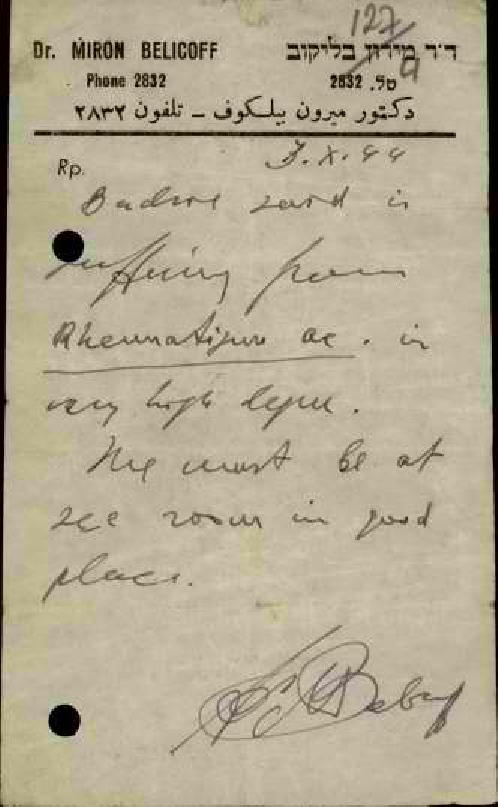 127
9
Dr. MIRON BELICOFF
ד״ר מירון בליקוב
Phone 2832
טל. 2832
دكتور ميرون بيلكوف ـ تلفون ٢٨٣٢
3.X.44
Rp.
is
suffering from
Rheumatismus ac. in
very high degree.
must be at
room in good
place.